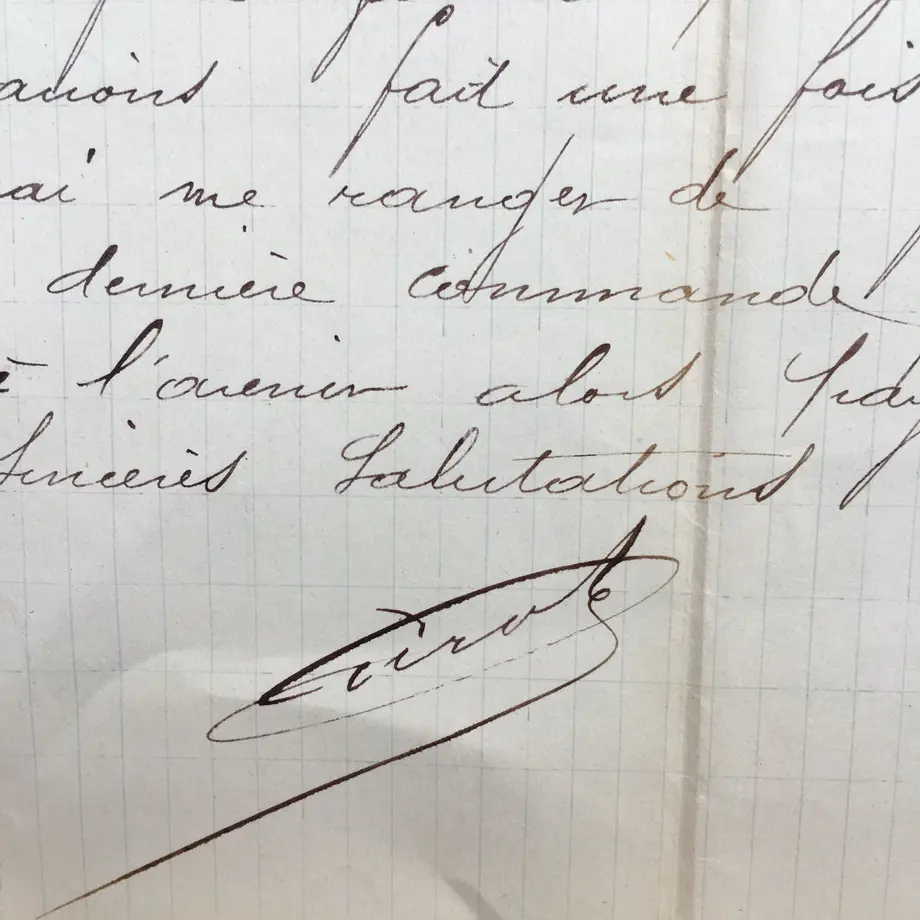 avions fait une fois
ai me ranger de
dernière commande
à l'avenir alors
Sincères Salutations